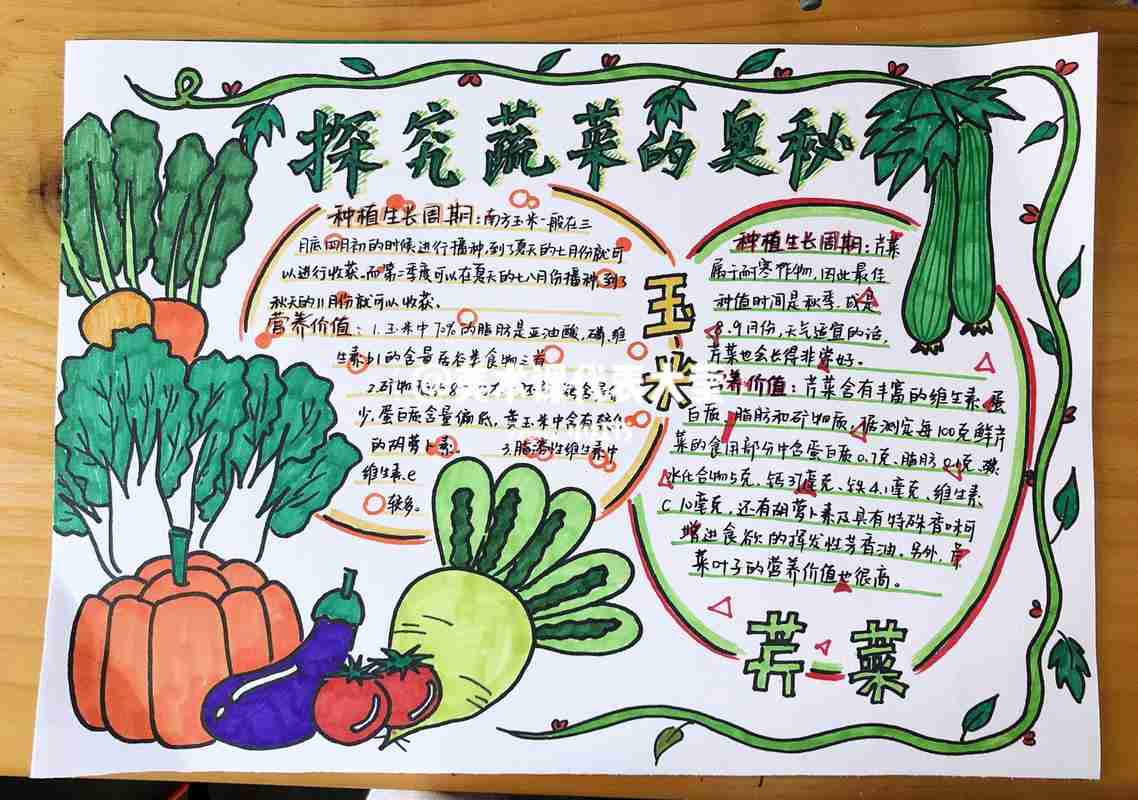 探究蔬菜的奥秘
种植生长周期：南方玉米一般在三
月底四月初的时候进行播种，到了夏天的七月份就可
以进行收获。而第二季度可以在夏天的七八月份播种，到了
秋天的11月份就可以收获。
营养价值：1.玉米中70%的脂肪是亚油酸，磷，维
生素b1的含量居谷类食物之首
2.矿物
少，蛋白质含量偏低，黄玉米中含有
的胡萝卜素。 3.脂溶性维生素中
维生素e
较多。
玉米
种植生长周期：芹菜
属于耐寒作物，因此最佳
种值时间是秋季，或是
8、9月份，天气适宜的话，
芹菜也会长得非常好。
营养价值：芹菜含有丰富的维生素、蛋
白质、脂肪和矿物质，据测定每100克鲜芹
菜的食用部分中含蛋白质0.7克、脂肪0.1克、碳
水化合物5克、钙37毫克、铁4.1毫克、维生素
C 10毫克，还有胡萝卜素及具有特殊香味可
增进食欲的挥发性芳香油，另外，芹
菜叶子的营养价值也很高。
芹菜